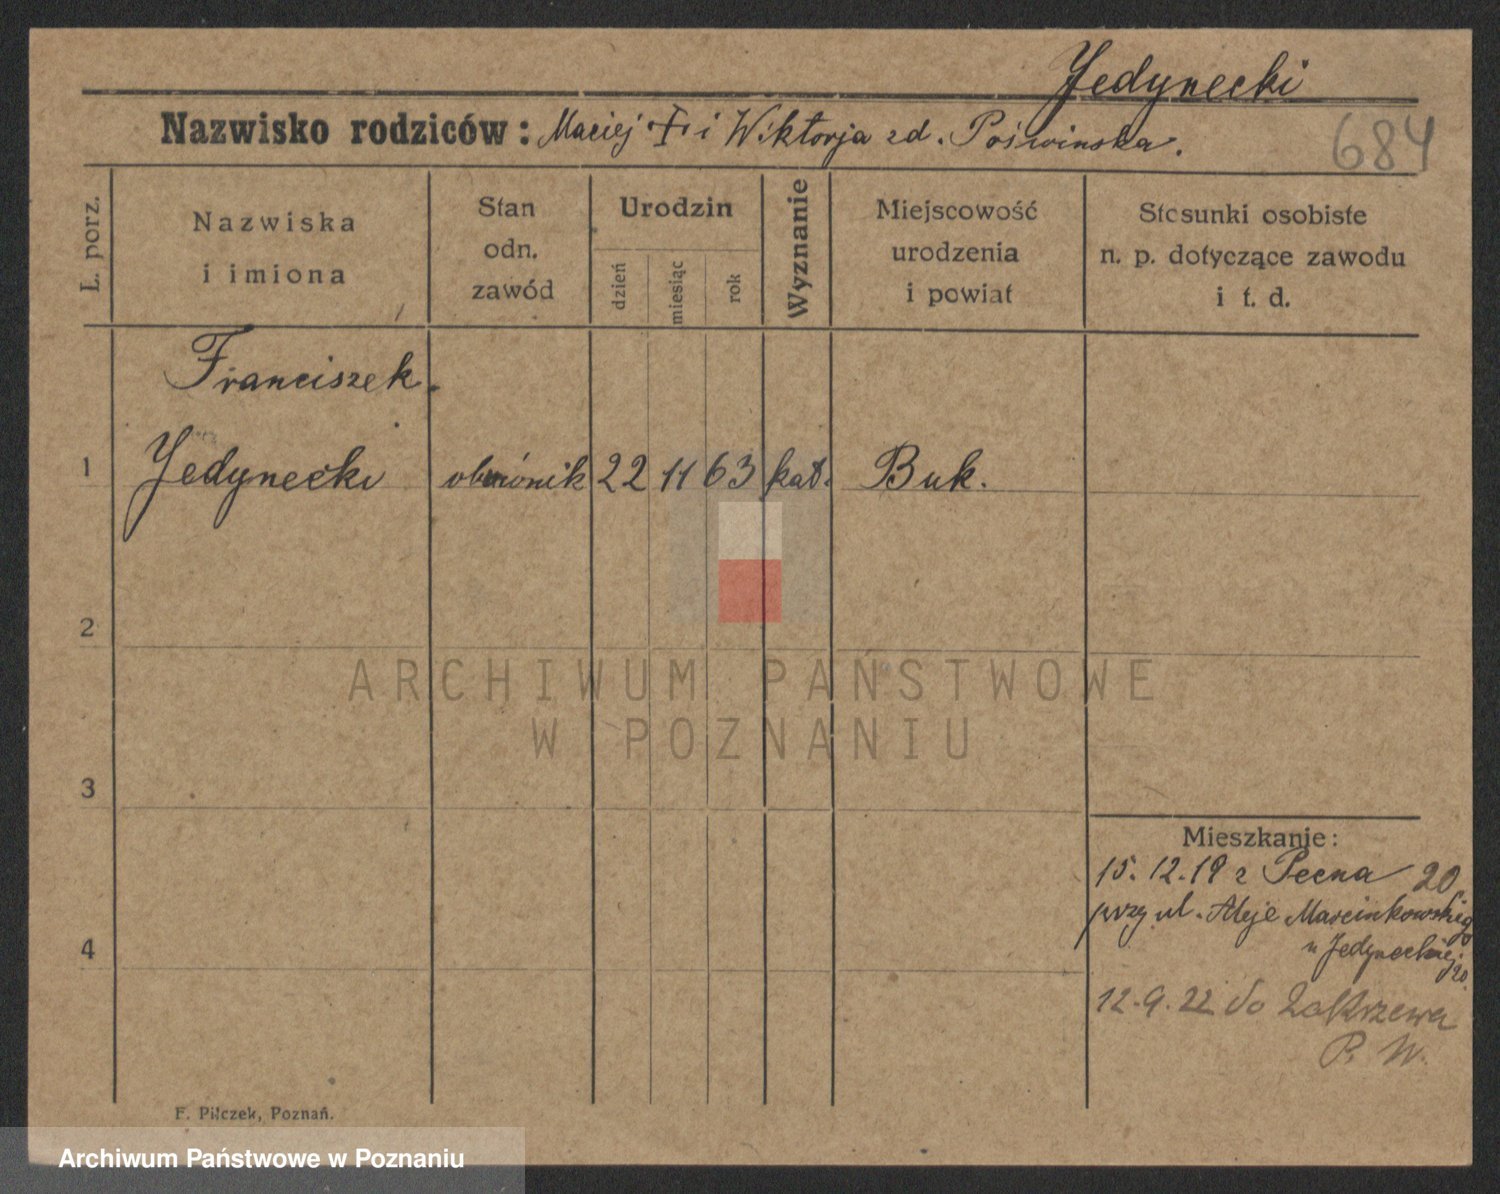 Jedynecki
Nazwisko rodziców: Maciej † i Wiktorja zd. Poświńska.
684
L. porz.
Nazwiska
i imiona
Stan
odn.
zawód
Urodzin
dzień
miesiąc
rok
Wyznanie
Miejscowość
urodzenia
i powiat
Stosunki osobiste
n. p. dotyczące zawodu
i t. d.
Franciszek
1 Jedynecki 22 11 63 kat. Buk.
2
ARCHIWUM PAŃSTWOWE
W POZNANIU
3
Mieszkanie:
15. 12. 19 z Pecna 20
przy ul. Aleje Marcinkowskiego
u Jedyneckiej 20.
4
12. 9. 22 do Zakrzewa
P. W.
F. Pilczek, Poznań.
Archiwum Państwowe w Poznaniu